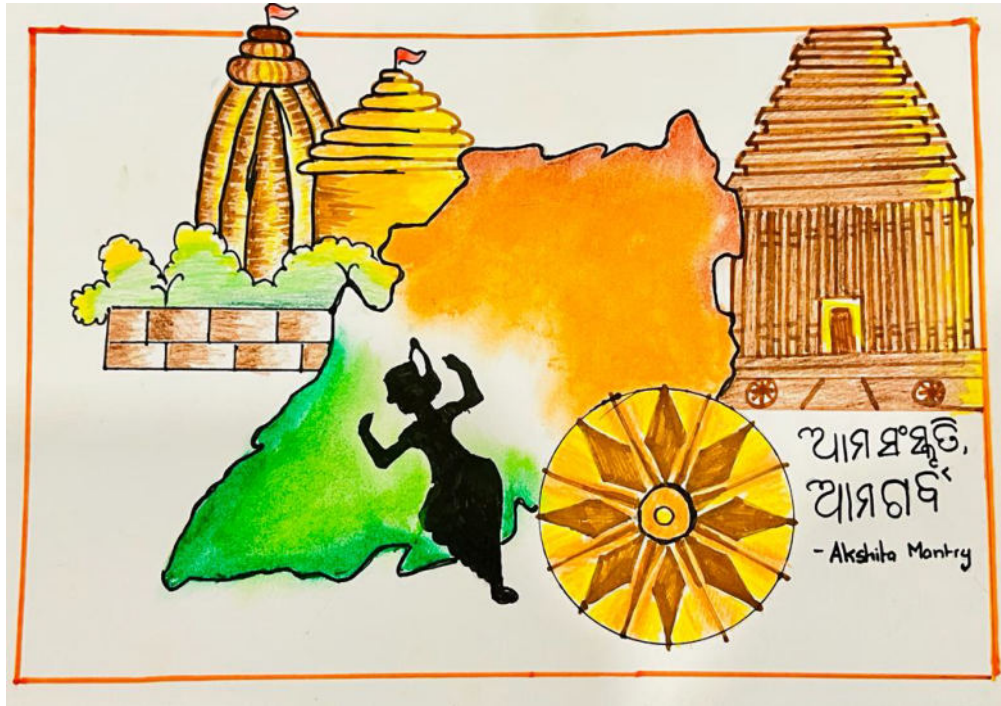 ଆମ ସଂସ୍କୃତି,
ଆମ ଗର୍ବ
- Akshita Mantry